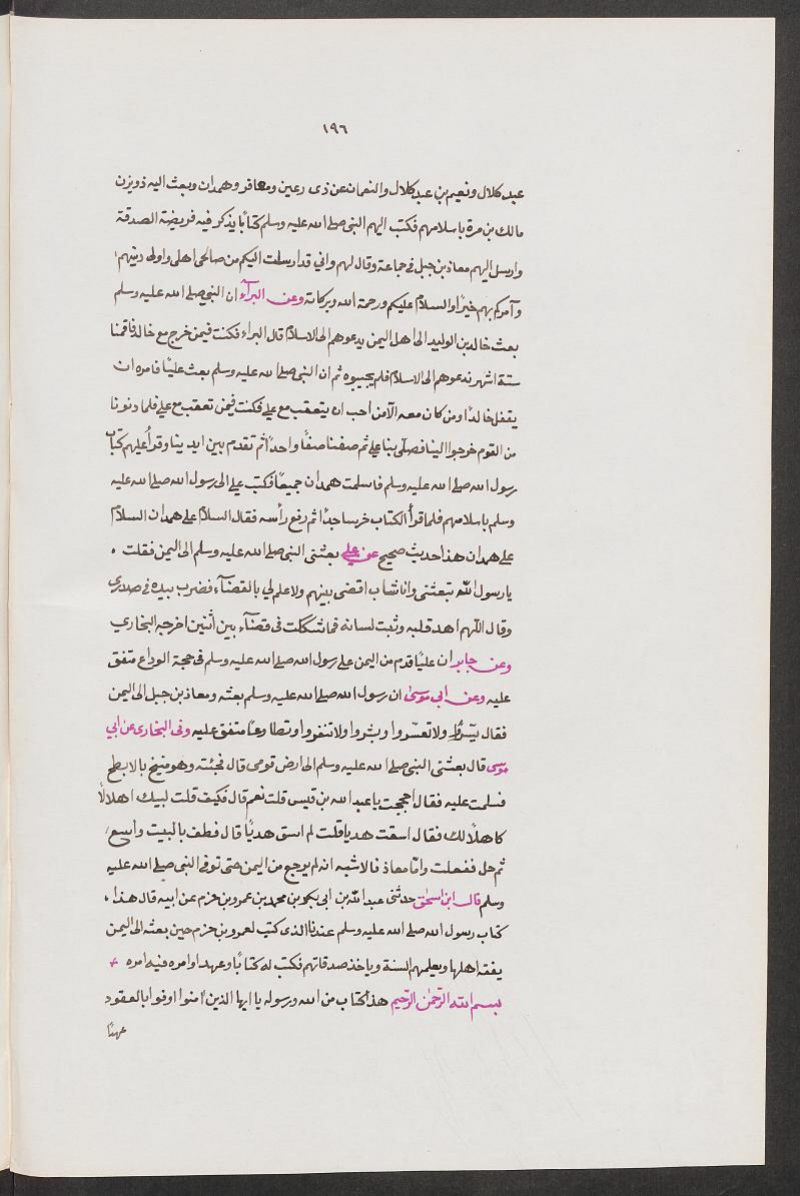 ١٩٦
عبد كلال ونعيم بن عبد كلال والنعمان عن ذى رعين ومعافر وهمدان وبعث اليه ذو يزن
مالك بن مرة باسلامهم فكتب اليهم النبى صلى الله عليه وسلم كتابا يذكر فيه فريضة الصدقة
وارسل اليهم معاذ بن جبل فى جماعة وقال لهم واني قد ارسلت اليكم من صالحى اهلى واولى دينهم
وآمركم بهم خيرًا والسلام عليكم ورحمة الله وبركاته وعن البرآء ان النبي صلى الله عليه وسلم
بعث خالد بن الوليد الى اهل اليمن يدعوهم الى الاسلام قال البراء فكنت فيمن خرج مع خالد فاقمنا
ستة اشهر ندعوهم الى الاسلام فلم يجيبوه ثم ان النبى صلى الله عليه وسلم بعث عليًا فامره ان
يقفل خالدًا ومن كان معه الا من احب ان يتعقب مع علي فكنت فيمن تعقب مع علي فلما دنونا
من القوم خرجوا الينا فصلّى بنا علي ثم صفنا صفًا واحدًا ثم تقدم بين ايدينا وقرأ عليهم كتاب
رسول الله صلى الله عليه وسلم فاسلمت همدان جميعًا فكتب علي الى رسول الله صلى الله عليه
وسلم باسلامهم فلما قرأ الكتاب خر ساجدًا ثم رفع رأسه فقال السلام على همدان السلام
على همدان هذا حديث صحيح عن علي بعثنى النبى صلى الله عليه وسلم الى اليمن فقلت
يا رسول الله تبعثنى وانا شاب اقضى بينهم ولا علم لي بالقضآء فضرب بيده فى صدرى
وقال اللهم اهد قلبه وثبت لسانه فما شككت فى قضآء بين اثنين اخرجه البخارى
وعن جابر ان عليًا قدم من اليمن على رسول الله صلى الله عليه وسلم فى حجة الوداع متفق
عليه وعن ابى موسى ان رسول الله صلى الله عليه وسلم بعثه ومعاذ بن جبل الى اليمن
فقال يسّرا ولا تعسّروا وبشروا ولا تنفروا وتطاوعا متفق عليه وفى البخارى عن ابي
موسى قال بعثنى النبى صلى الله عليه وسلم الى ارض قومى قال فجئته وهو منيخ بالابطح
فسلمت عليه فقال احججت يا عبد الله بن قيس قلت نعم قال فكيف قلت لبيك اهلالا
كاهلالك فقال اسقت هديا قلت لم اسق هديًا قال فطف بالبيت واسع
ثم حل ففعلت وامّا معاذ فالاشبه انه لم يرجع من اليمن حتى توفى النبى صلى الله عليه
وسلم قال ابن اسحق حدثنى عبد الله بن ابى بكر بن محمد بن عمرو بن حزم عن ابيه قال هذا
كتاب رسول الله صلى الله عليه وسلم عندنا الذى كتب لعمرو بن حزم حين بعثه الى اليمن
يفقه اهلها ويعلمهم السنة وياخذ صدقاتهم فكتب له كتابًا وعهدا وامره فيه امره
بسم الله الرحمن الرحيم هذا كتاب من الله ورسوله يا ايها الذين امنوا اوفوا بالعقود
عهدًا